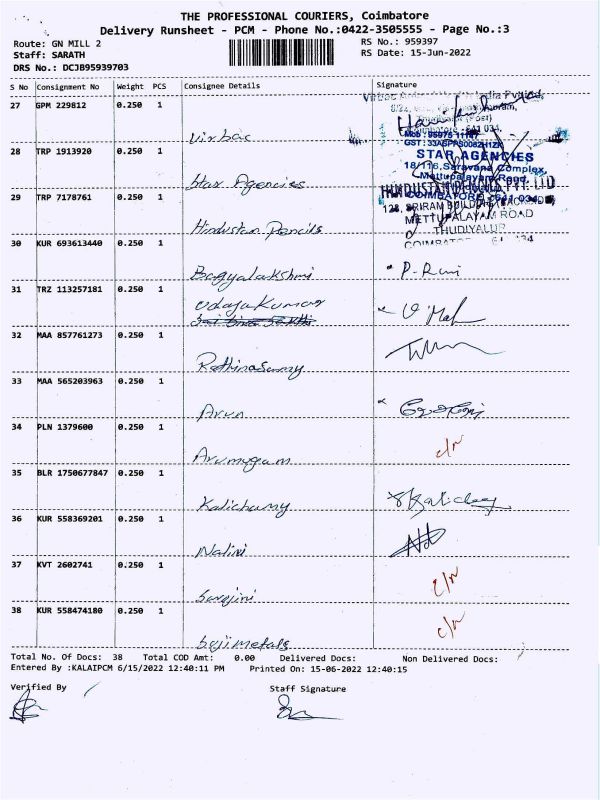 THE PROFESSIONAL COURIERS, Coimbatore
Delivery Runsheet - PCM - Phone No.:0422-3505555 - Page No.:3
Route: GN MILL 2
RS No.: 959397
Staff: SARATH
RS Date: 15-Jun-2022
DRS No.: DCJB95939703
S No Consignment No Weight PCS Consignee Details Signature
27 GPM 229812 0.250 1
Virbac
28 TRP 1913920 0.250 1
Star Agencies
STAR AGENCIES
18/116, Saravana Complex,
Mettupalayam Road,
29 TRP 7178761 0.250 1
Hindustan Pencils
HINDUSTAN PENCILS PVT. LTD
COIMBATORE - 641 034.
128, SRIRAM BUILDING
METTUPALAYAM ROAD
THUDIYALUR
30 KUR 693613440 0.250 1
Bagyalakshmi
P-Rani
31 TRZ 113257181 0.250 1
Udaya Kumar
32 MAA 857761273 0.250 1
Rathinasamy
33 MAA 565203963 0.250 1
Arun
34 PLN 1379600 0.250 1
Arumugam
c/n
35 BLR 1750677847 0.250 1
Kalichamy
36 KUR 558369201 0.250 1
Nalini
37 KVT 2602741 0.250 1
Sarojini
c/n
38 KUR 558474180 0.250 1
bajimetals
c/n
Total No. Of Docs: 38 Total COD Amt: 0.00 Delivered Docs: Non Delivered Docs:
Entered By :KALAIPCM 6/15/2022 12:40:11 PM Printed On: 15-06-2022 12:40:15
Verified By
Staff Signature